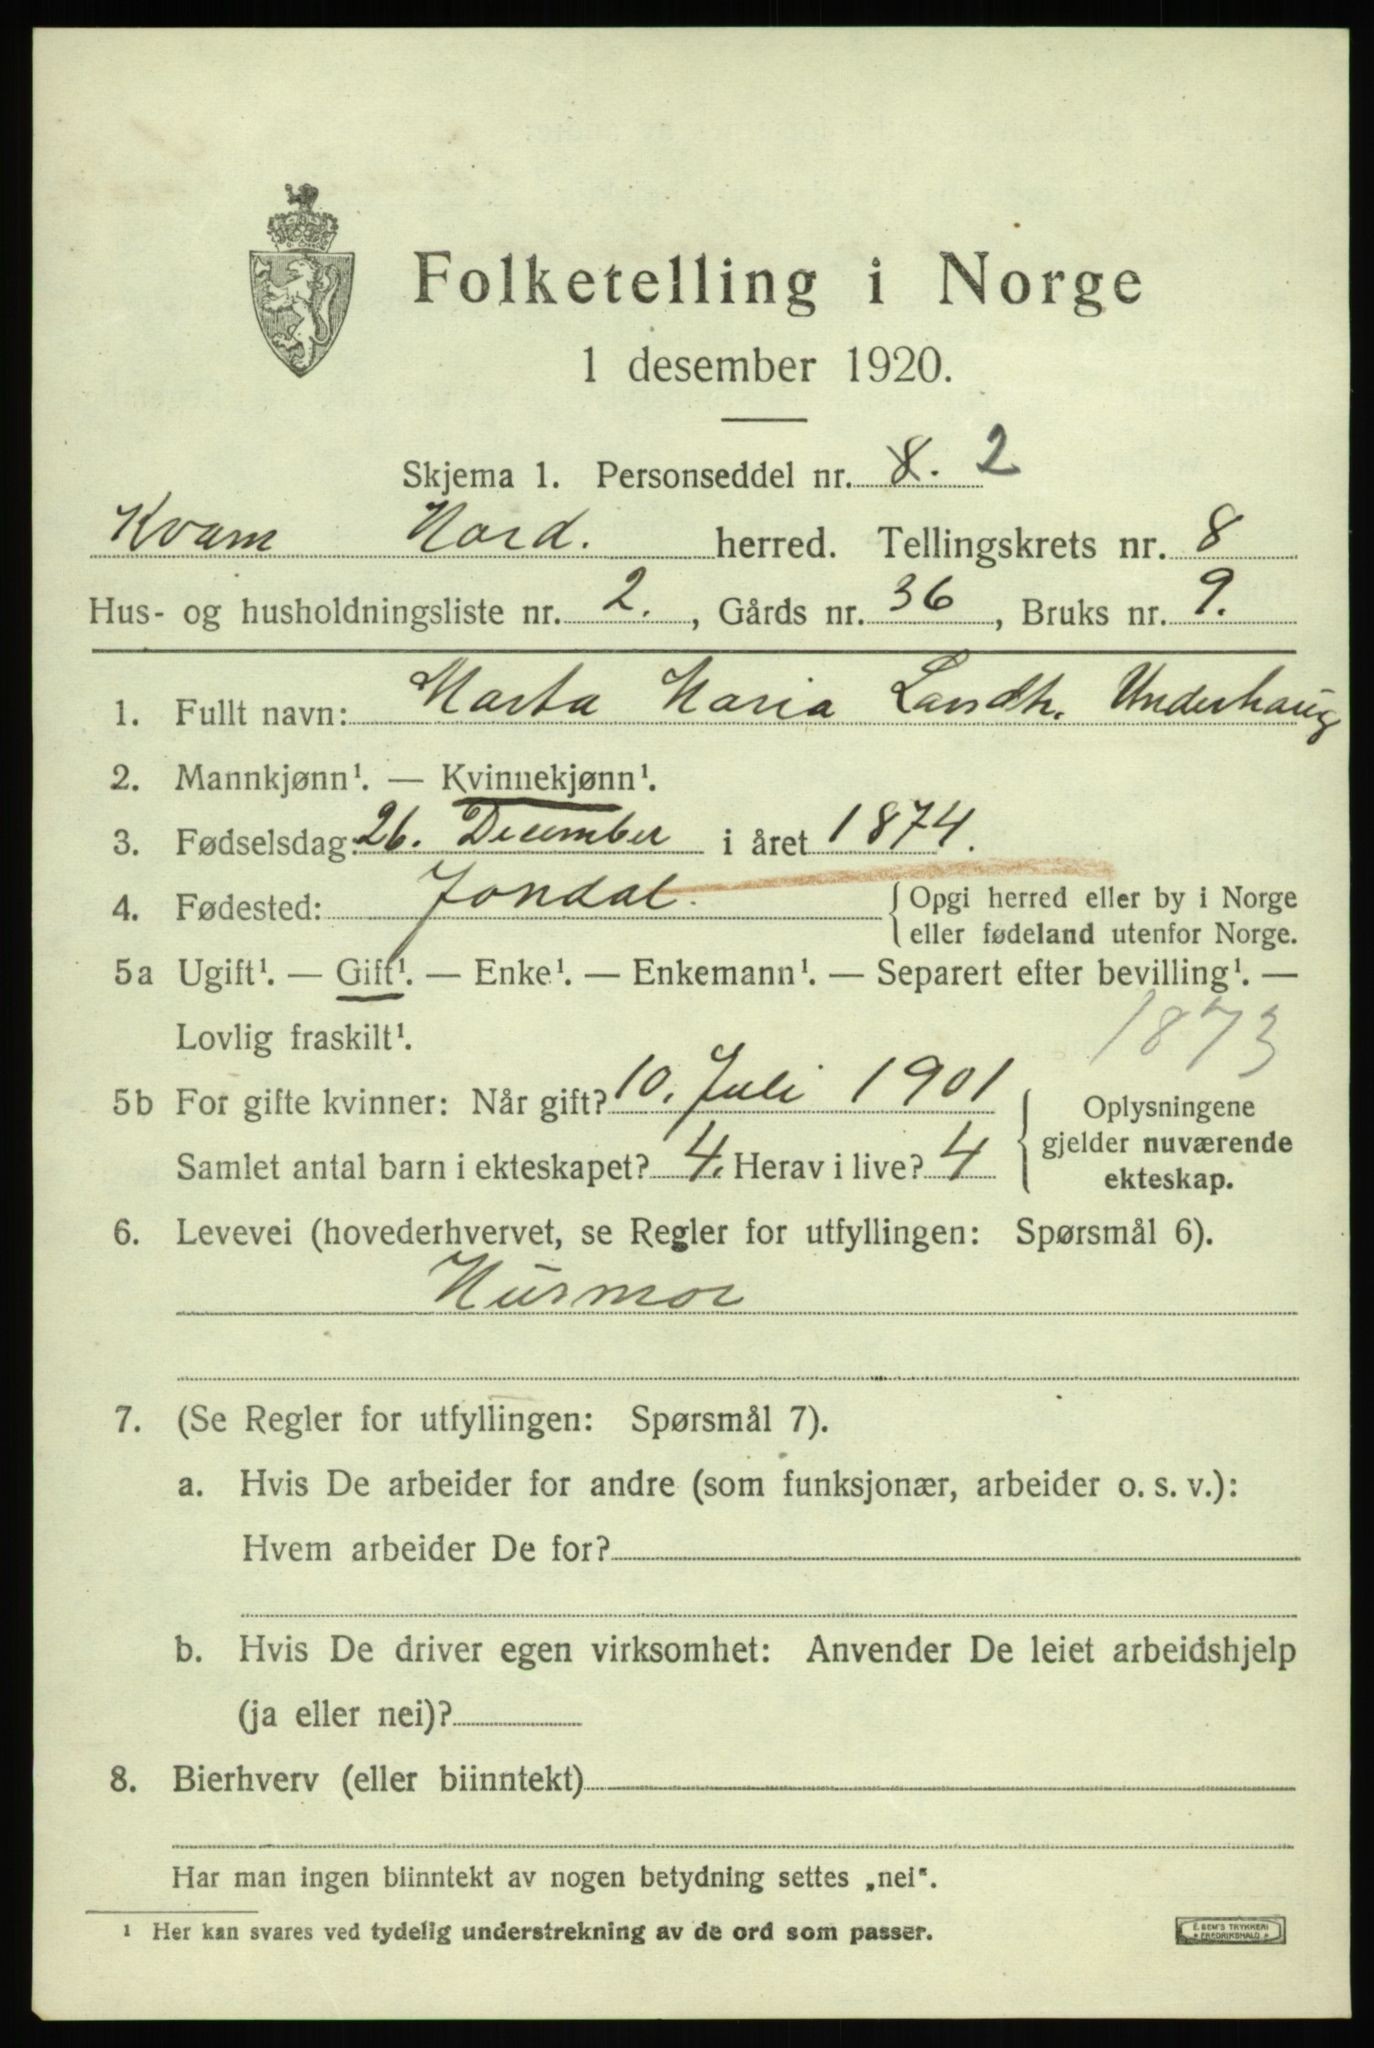 Folketelling i Norge
1 desember 1920.
Skjema 1. Personseddel nr. 8. 2
Kvam Nord. herred. Tellingskrets nr. 8
Hus- og husholdningsliste nr. 2. , Gårds nr. 36 , Bruks nr. 9.
1. Fullt navn: Marta Maria Larsdtr. Underhaug
2. Mannkjønn¹. — Kvinnekjønn¹.
3. Fødselsdag: 26. December i året 1874.
4. Fødested: Jondal. { Opgi herred eller by i Norge
eller fødeland utenfor Norge.
5a Ugift¹. — Gift¹. — Enke¹. — Enkemann¹. — Separert efter bevilling¹. —
Lovlig fraskilt¹. 1873
5b For gifte kvinner: Når gift? 10. Juli 1901 { Oplysningene
gjelder nuværende
Samlet antal barn i ekteskapet? 4. Herav i live? 4 ekteskap.
6. Levevei (hovederhvervet, se Regler for utfyllingen: Spørsmål 6).
Husmor
7. (Se Regler for utfyllingen: Spørsmål 7).
a. Hvis De arbeider for andre (som funksjonær, arbeider o. s. v.):
Hvem arbeider De for?
b. Hvis De driver egen virksomhet: Anvender De leiet arbeidshjelp
(ja eller nei)?
8. Bierhverv (eller biinntekt)
Har man ingen biinntekt av nogen betydning settes „nei".
¹ Her kan svares ved tydelig understrekning av de ord som passer.
E. SEM'S TRYKKERI
FREDRIKSHALD